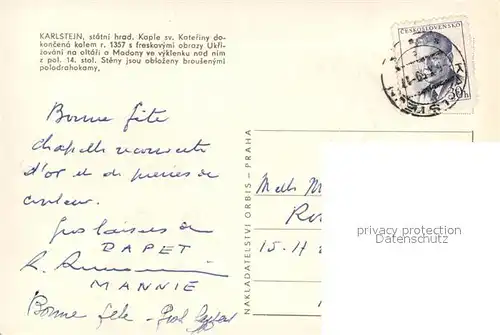 KARLSTEJN, státní hrad. Kaple sv. Kateřiny do-
končená kolem r. 1357 s freskovými obrazy Ukři-
žování na oltáři a Madony ve výklenku nad ním
z pol. 14. stol. Stěny jsou obloženy broušenými
polodrahokamy,
ČESKOSLOVENSKO
30 h
Bonne fête
chapelle recouverte
d'or et de pierres de
couleur.
Gros baisers de
DAPET
MANNIE
Bonne fête -
NAKLADATELSTVÍ ORBIS - PRAHA
Melle M
15 H
privacy protection
Datenschutz